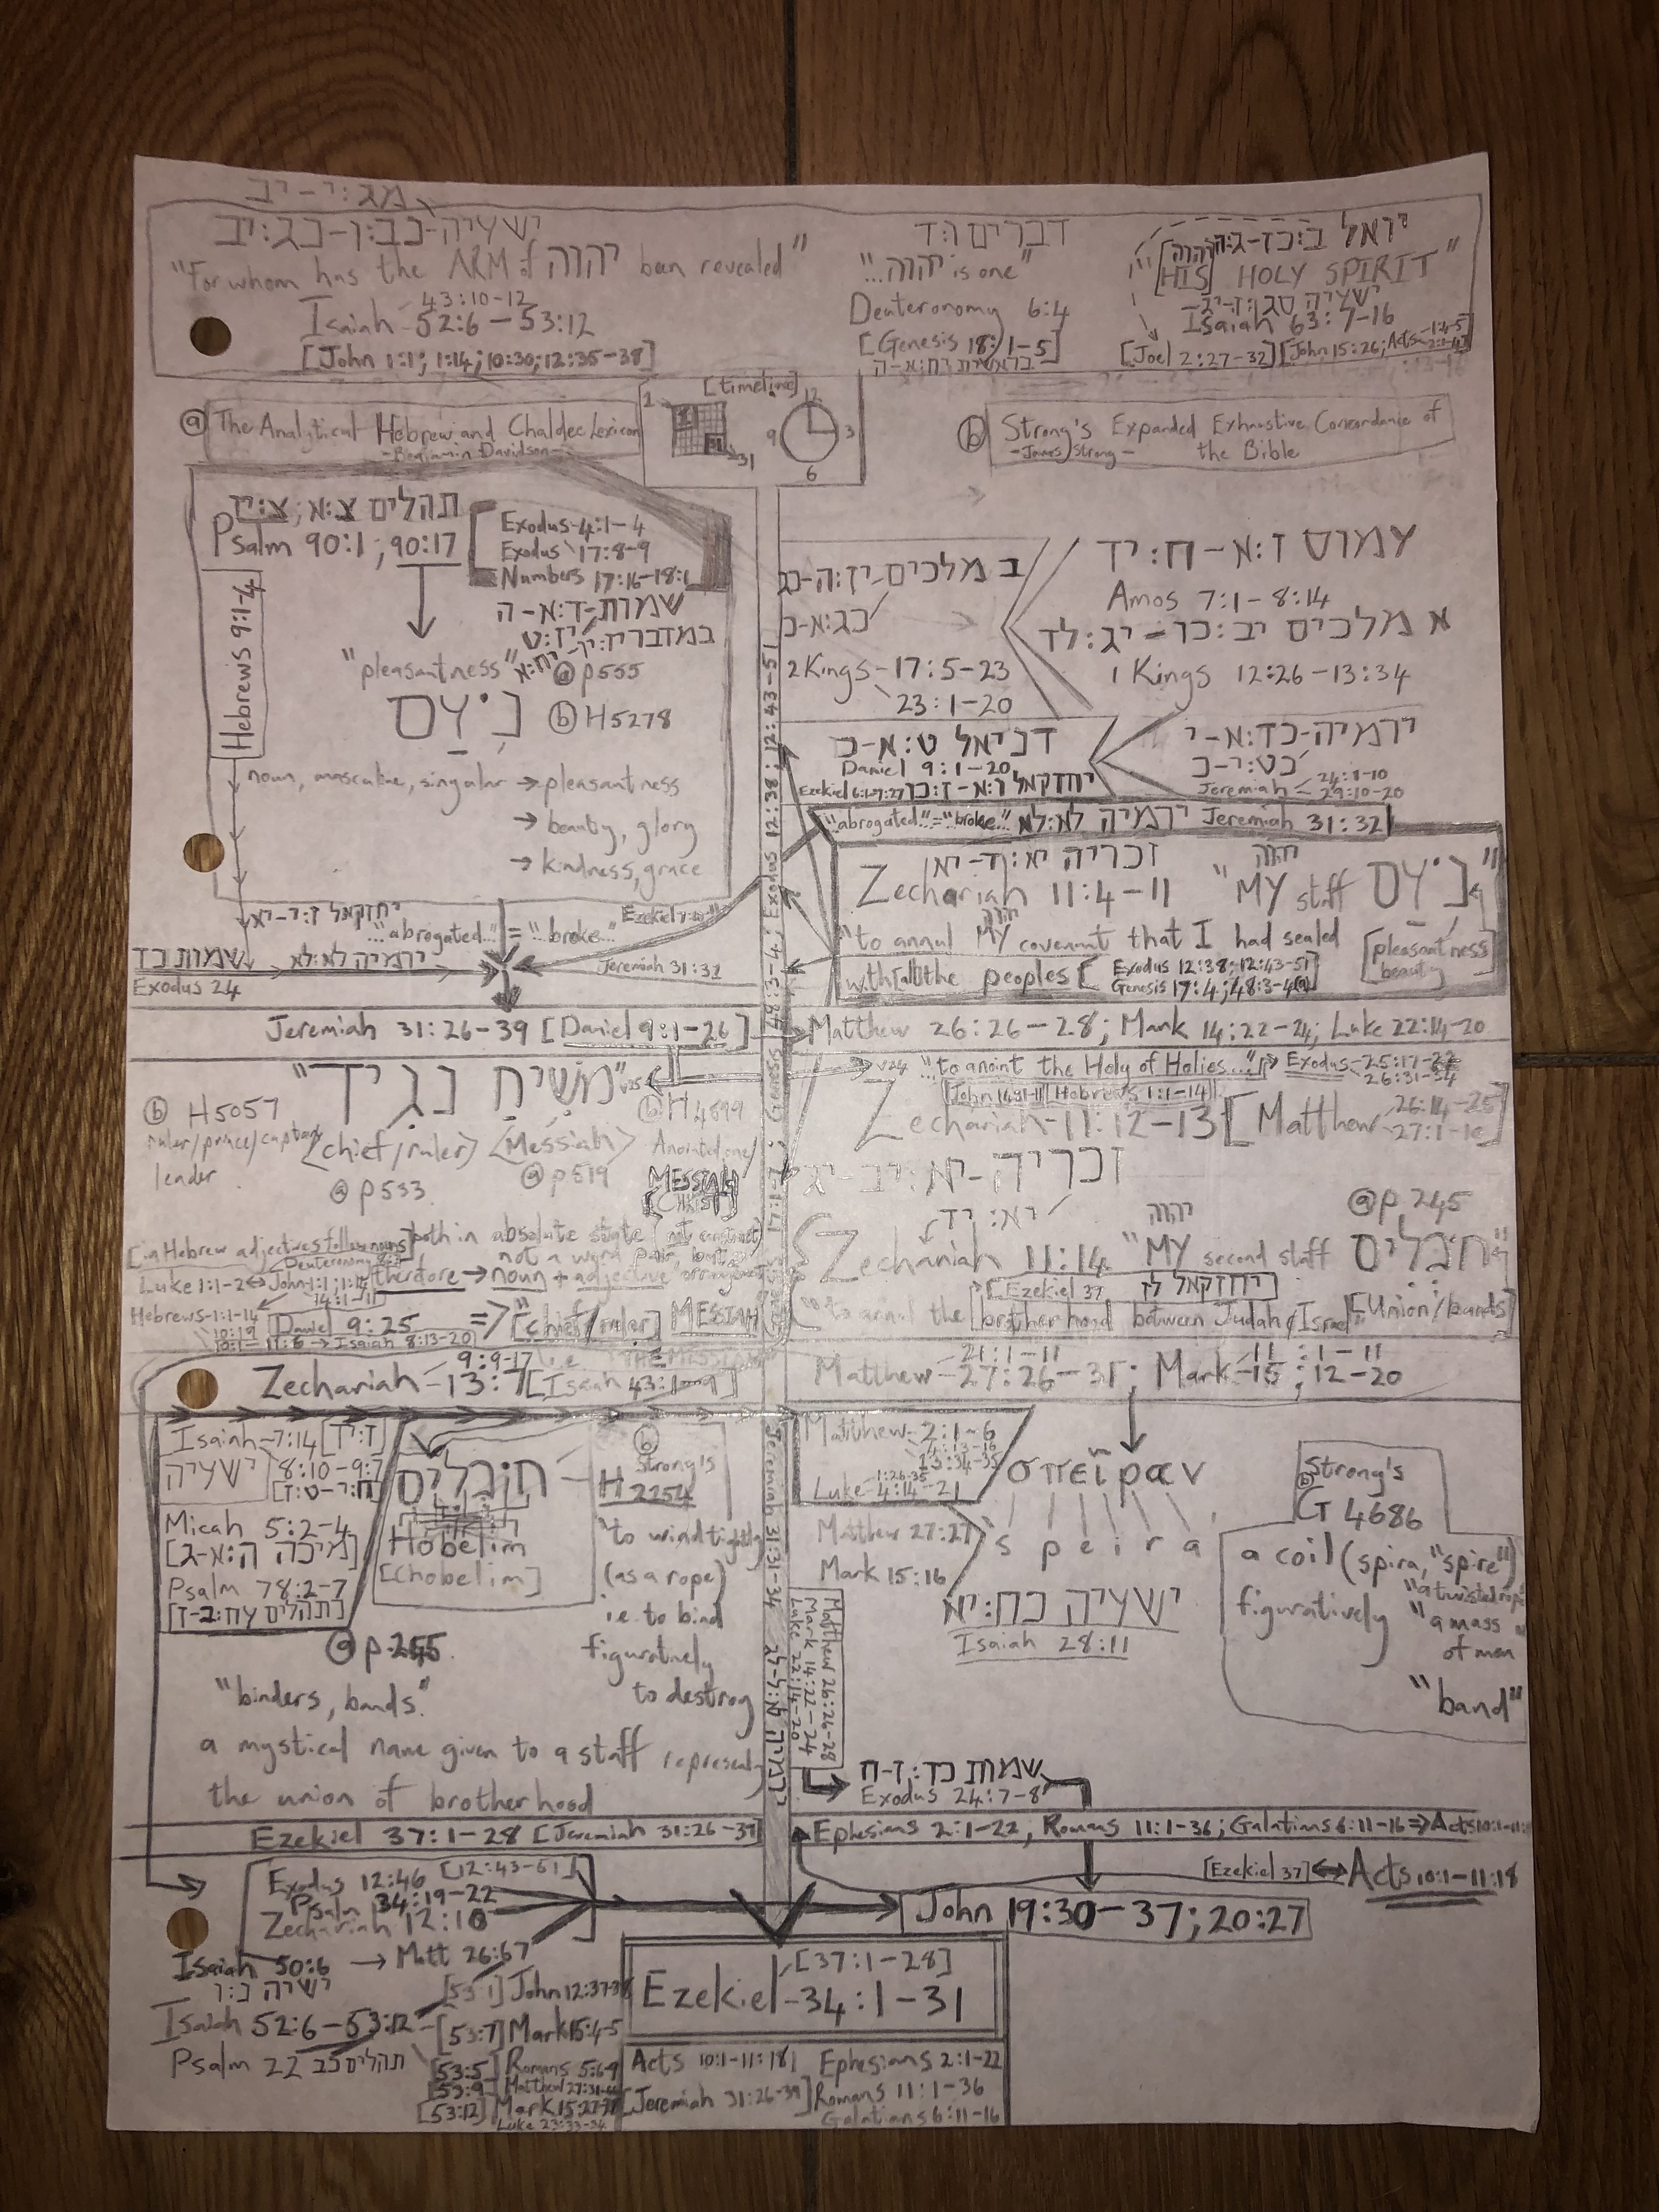 מג:י-יב
ישעיה-נב:ו-נג:יב
"For whom has the ARM of יהוה been revealed"
43:10-12
Isaiah-52:6-53:12
[John 1:1; 1:14; 10:30; 12:35-38]
דברים ו:ד
"...יהוה is one"
Deuteronomy 6:4
[Genesis 18:1-5]
בראשית יח:א-ה
יואל ב:כז-ג:ה
יהוה
[HIS] HOLY SPIRIT"
ישעיה סג:ז-יב
Isaiah 63:7-16
[Joel 2:27-32][John 15:26; Acts
[timeline]
1
31
12
9 3
6
@ The Analytical Hebrew and Chaldee Lexicon
-Benjamin Davidson-
(b) Strong's Expanded Exhaustive Concordance of
-James Strong- the Bible
תהלים צ:א; צ:יז
Psalm 90:1; 90:17
Exodus-4:1-4
Exodus 17:8-9
Numbers 17:16-18:1
שמות-ד:א-ה
יז:ט
במדבר יז:יו-יח:א
Hebrews 9:1-4
"pleasantness" @p555
נֹעַם (b) H5278
noun, masculine, singular → pleasantness
→ beauty, glory
→ kindness, grace
ב מלכים יז:ה-כג
כג:א-כ
2 Kings-17:5-23
23:1-20
עמוס ז:א-ח:יד
Amos 7:1-8:14
א מלכים יב:כו-יג:לד
1 Kings 12:26-13:34
דניאל ט:א-כ
Daniel 9:1-20
Ezekiel 6:1-7:27 יחזקאל ו:א-ז:כז
ירמיה-כד:א-י
כט:י-כ
Jeremiah 24:1-10
29:10-20
"abrogated"="broke..." ירמיה לא:לא Jeremiah 31:32
זכריה יא:ד-יא
יהוה
Zechariah 11:4-11 "MY staff נֹעַם"
יהוה
"to annul MY covenant that I had sealed
with [all] the peoples [Exodus 12:38; 12:43-51]
Genesis 17:4; 48:3-4@
[pleasantness
beauty]
יחזקאל ז:י-יא
"abrogated..." = "...broke..."
שמות כד ירמיה לא:לא Jeremiah 31:32
Exodus 24
Jeremiah 31:26-39 [Daniel 9:1-26]
Matthew 26:26-28; Mark 14:22-24; Luke 22:14-20
v24 "to anoint the Holy of Holies..." Exodus-25:17-22
26:31-34
[Hebrews 1:1-14]
Zechariah-11:12-13 [Matthew 26:14-25
27:1-10]
זכריה-יא:יב-יג
"מָשִׁיחַ נָגִיד" v25
(b) H5057 (b) H4899
ruler/prince/captain <chief/ruler> <Messiah> Anointed one/
leader @p533 @p519 MESSIAH
[CHRIST]
[in Hebrew adjectives follow nouns] both in absolute state [not construct]
not a word pair, but
Luke 1:1-2 ↔ John 1:1; 1:14 therefore → noun + adjective arrangement
14:1-11
Hebrews-1:1-14 [Daniel 9:25 ⇒ "[chief/ruler] MESSIAH
10:1-11:6 → Isaiah 8:13-20
יא:יד
יהוה @p245
Zechariah 11:14 "MY second staff חֹבְלִים"
[Ezekiel 37 יחזקאל לז]
"to annul the brotherhood between Judah & Israel" [Union/bands]
9:9-17
Zechariah-13:7 [Isaiah 43:1-9]
21:1-11 11:1-11
Matthew-27:26-31; Mark-15:12-20
Exodus 12:38; 12:43-51
Genesis 48:3-4; 17:1-7
Jeremiah 31:31-34 ירמיה לא:ל-לג
Isaiah-7:14 [ז:יד]
ישעיה 8:10-9:7
[ח:י-ט:ז]
Micah 5:2-4
[מיכה ה:א-ג]
Psalm 78:2-7
[תהלים עח:ב-ז]
חֹבְלִים
Hobelim
[Chobelim]
(b)
Strong's
H 2254
"to wind tightly
(as a rope)
i.e. to bind
figuratively
to destroy
@p.245.
"binders, bands."
a mystical name given to a staff
the union of brotherhood
Matthew-2:1-6
4:13-16
13:34-35
1:26-35
Luke-4:14-21
Matthew 27:27
Mark 15:16
σπεῖραν
s p e i r a
ישעיה כח:יא
Isaiah 28:11
(b) Strong's
G 4686
a coil (spira, "spire")
figuratively "a twisted rope"
"a mass
of men
"band"
Matthew 26:26-28
Mark 14:22-24
Luke 22:14-20
שמות כד:ז-ח
Exodus 24:7-8
Ezekiel 37:1-28 [Jeremiah 31:26-39]
Ephesians 2:1-22, Romans 11:1-36; Galatians 6:11-16 ⇒ Acts
[Ezekiel 37] ↔ Acts 10:1-11:18
Exodus 12:46 [12:43-51]
Psalm 34:19-22
Zechariah 12:10
John 19:30-37; 20:27
Isaiah 50:6 → Matt 26:67
ישעיה נ:ו
[53:1] John 12:37-38
Isaiah 52:6-53:12 [53:7] Mark 15:4-5
Psalm 22 תהלים כב
[53:5] Romans 5:6-9
[53:9] Matthew
[53:12] Mark
Luke
[37:1-28]
Ezekiel-34:1-31
Acts 10:1-11:18 Ephesians 2:1-22
[Jeremiah 31:26-39] Romans 11:1-36
Galatians 6:11-16